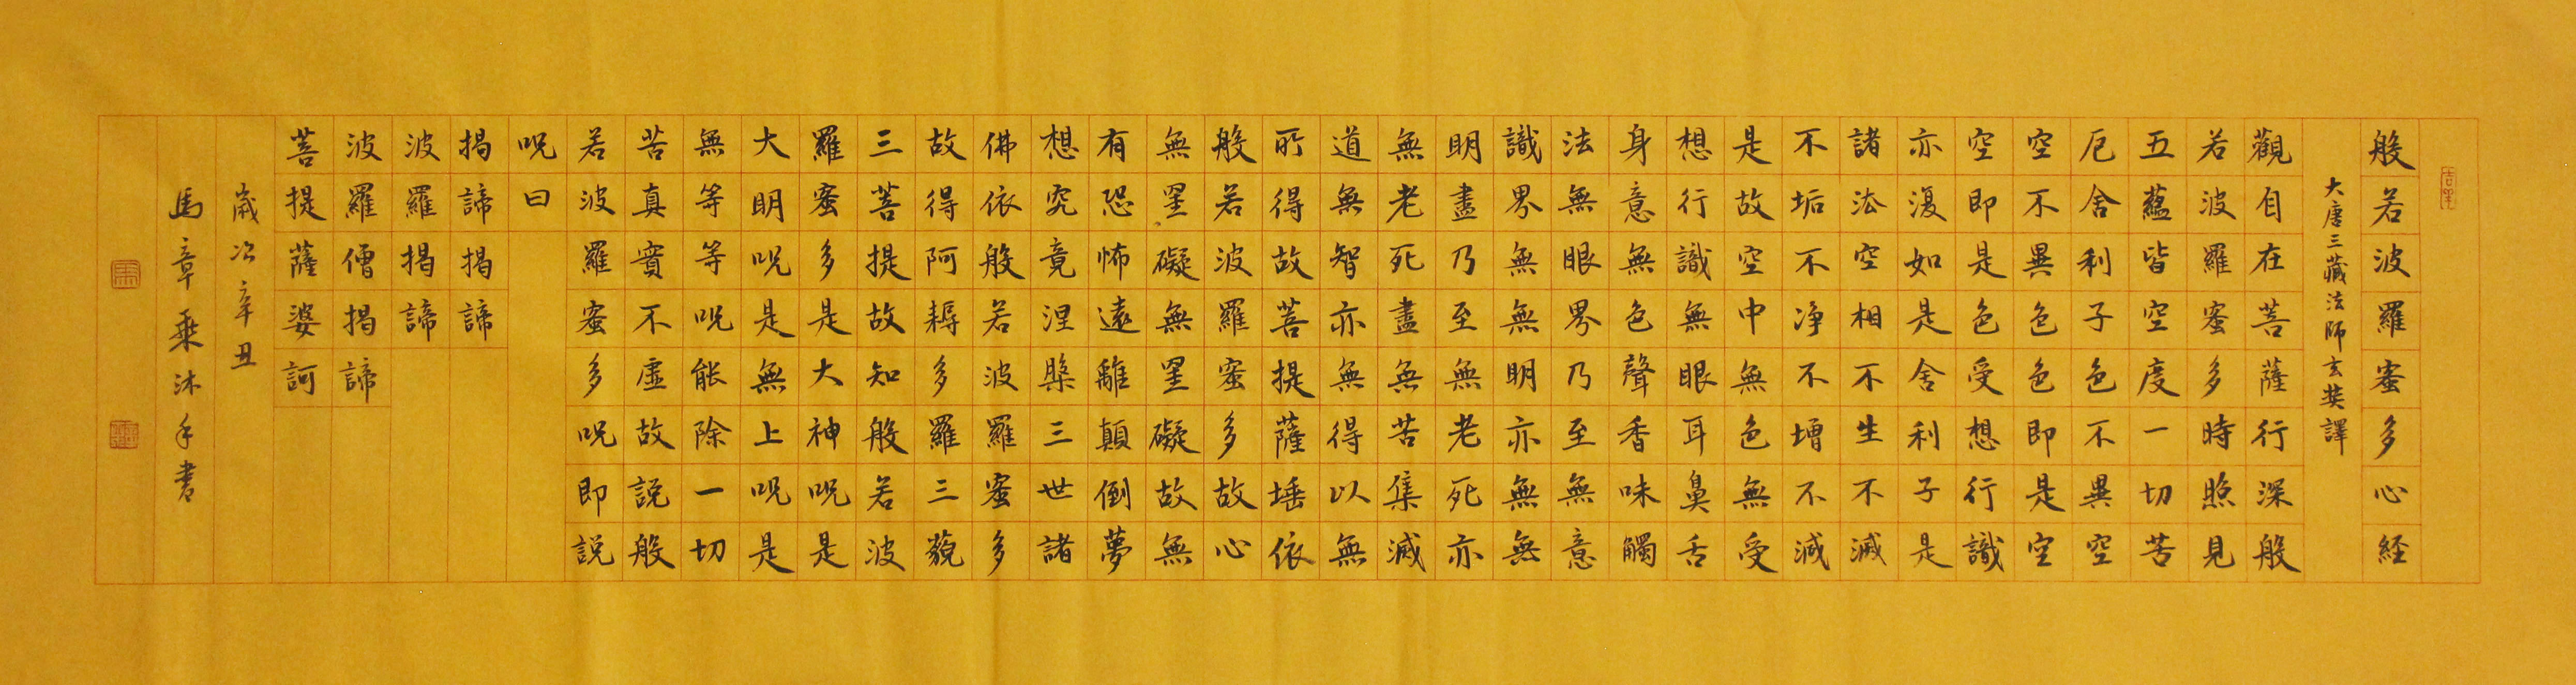 般若波羅蜜多心経
大唐三藏法師玄奘譯
觀自在菩薩行深般
若波羅蜜多時照見
五蘊皆空度一切苦
厄舍利子色不異空
空不異色色即是空
空即是色受想行識
亦復如是舍利子是
諸法空相不生不滅
不垢不净不增不減
是故空中無色無受
想行識無眼耳鼻舌
身意無色聲香味觸
法無眼界乃至無意
識界無無明亦無無
明盡乃至無老死亦
無老死盡無苦集滅
道無智亦無得以無
所得故菩提薩埵依
般若波羅蜜多故心
無罣礙無罣礙故無
有恐怖遠離顛倒夢
想究竟涅槃三世諸
佛依般若波羅蜜多
故得阿耨多羅三藐
三菩提故知般若波
羅蜜多是大神呪是
大明呪是無上呪是
無等等呪能除一切
苦真實不虛故説般
若波羅蜜多呪即説
呪曰
揭諦揭諦
波羅揭諦
波羅僧揭諦
菩提薩婆訶
歲次辛丑
馬章乘沐手書